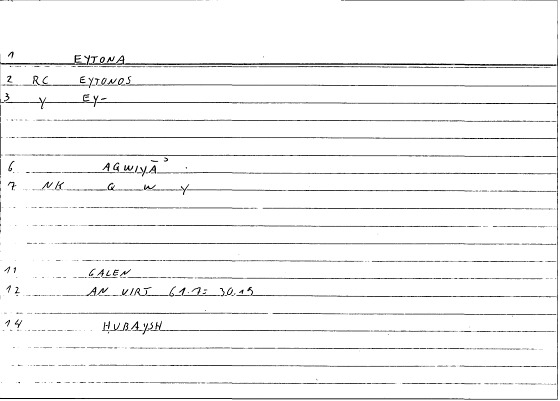 1 EYTONA
2 RC EYTONOS
3 Y EY-
6 AQWIYĀʾ
7 NK Q W Y
11 GALEN
12 AN VIRT 61.7: 30.15
14 HUBAYSH